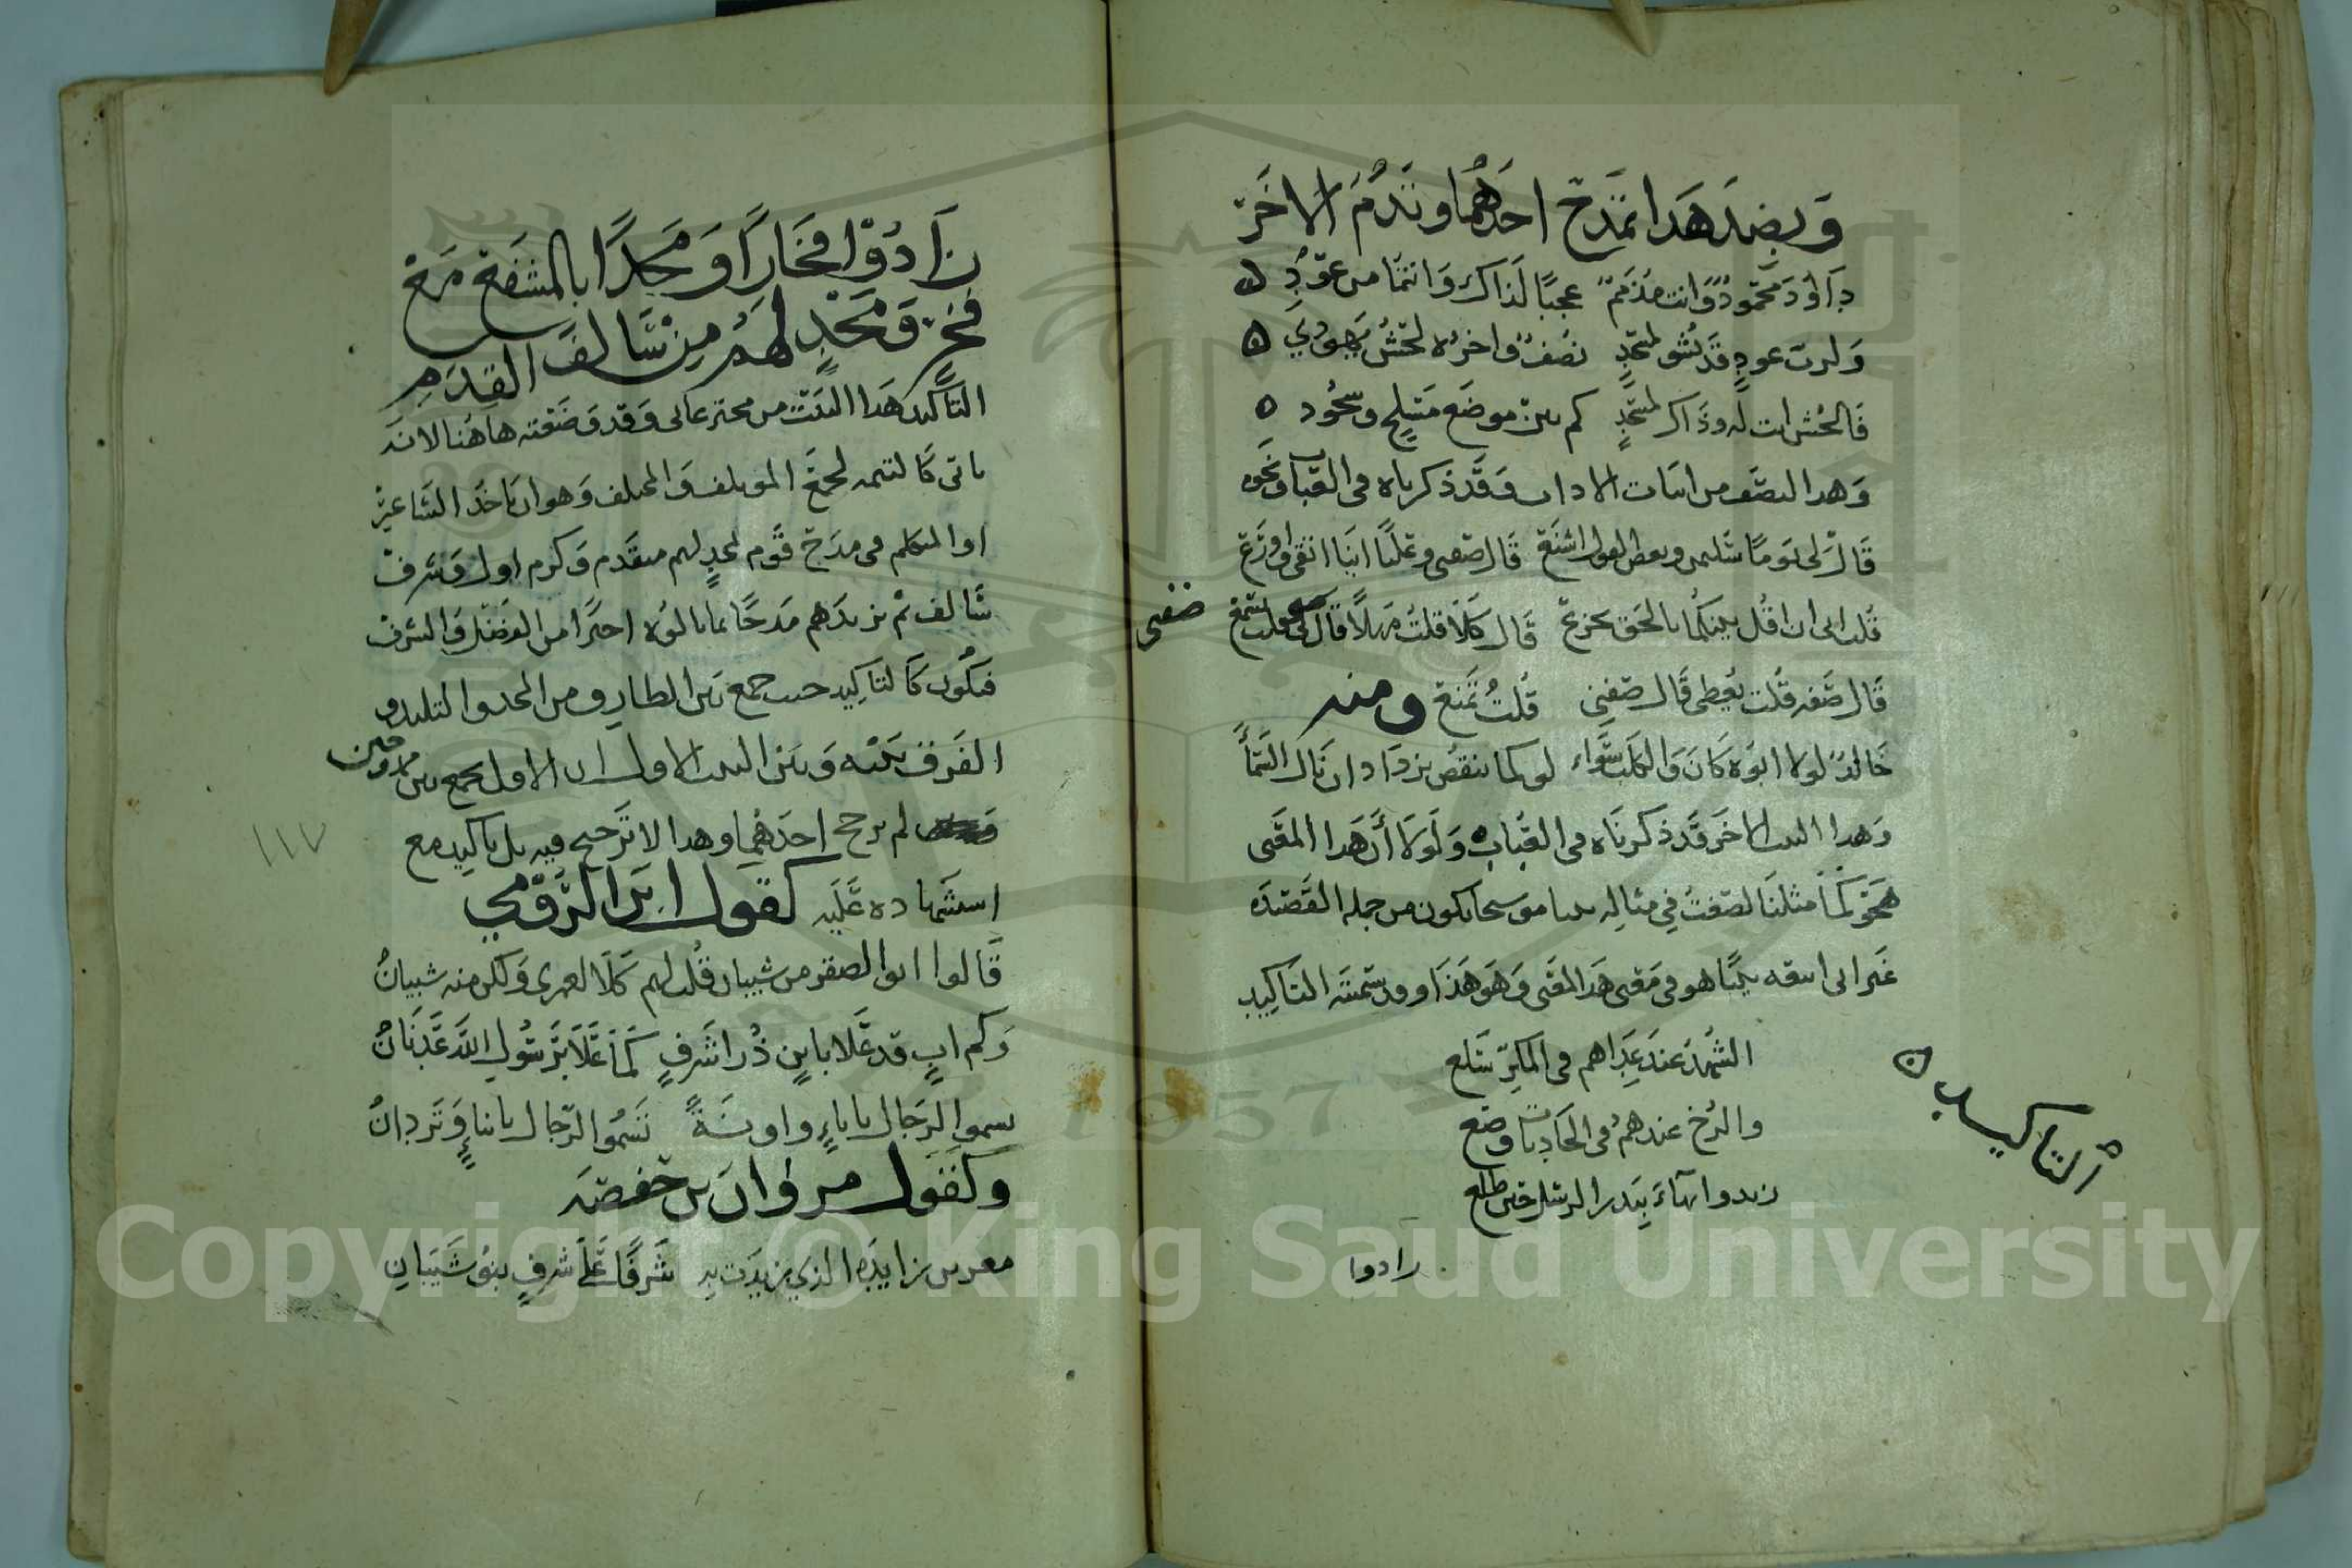 وبضد هذا تمدح احدهما وتذم الاخر
داود محمود وانت مذمم عجبا لذاك وانتما من عود
ولرب عود قد يشق لمسجد نصف واخره لحش يهودي
فالحش انت له وذاك لمسجد كم بين موضع مسلح وسجود
وهذا النصف من ابيات الاداب وقد ذكرناه في العتاب ونحوه
قال لي يوما سليمن وبعض القول اشنع قال صفني وعليا اينا اتقى واورع
قلت اني ان اقل بينكما بالحق تجزع قال كلا قلت مهلا قال قل لي قلت تسمع
صفني
قال صفه قلت يعطي قال صفني قلت تمنع ومنه
خالد لولا ابوه كان والكلب سواء لو كما ينقص يزداد اذن نال السما
وهذا البيت الاخر قد ذكرناه في العتاب ولولا ان هذا المعنى
هجو كما مثلنا لصغت في مثاله بيتا موشحا يكون من جملة القصيدة
غير اني اسقه بيتا هو في معنى هذا المعنى وهو هذا وقد سميته التاكيد
التاكيد
الشهد عند عداهم في المكر سلع
والرخ عندهم في الحادثات وضع
زيدوا بهاء ببدر الرسل حين طلع
زادوا
زادوا فخارا ومجدا بالمشفع مع
فخر ومجد لهم من سالف القدم
التاكيد هذا البيت من مخترعاتي وقد وضعته هاهنا لانه
ياتي كالتتمه لجمع المؤتلف والمختلف وهو ان ياخذ الشاعر
او المتكلم في مدح قوم لمجد لهم متقدم وكرم اول وشرف
سالف ثم يزيدهم مدحا بما نالوه اخيرا من الفضل والشرف
فيكون كالتاكيد حيث جمع بين الطارف من المجد والتليد و
الفرق بينه وبين البيت الاول ان الاول يجمع بين ممدوحين
لم يرجح احدهما وهذا لا ترجيح فيه بل تاكيد مع
استشهاده عليه كقول ابن الرومي
قالوا ابو الصقر من شيبان قلت لهم كلا لعمري ولكن منه شيبان
وكم اب قد علا بابن ذرا شرف كما علا برسول الله عدنان
تسموا الرجال باباء واونة تسموا الرجال بابناء وتزدان
وكقول مروان بن حفصه
معن بن زايده الذي يزيدت به شرفا على شرف بنو شيبان
١١٧
Copyright © King Saud University
1957